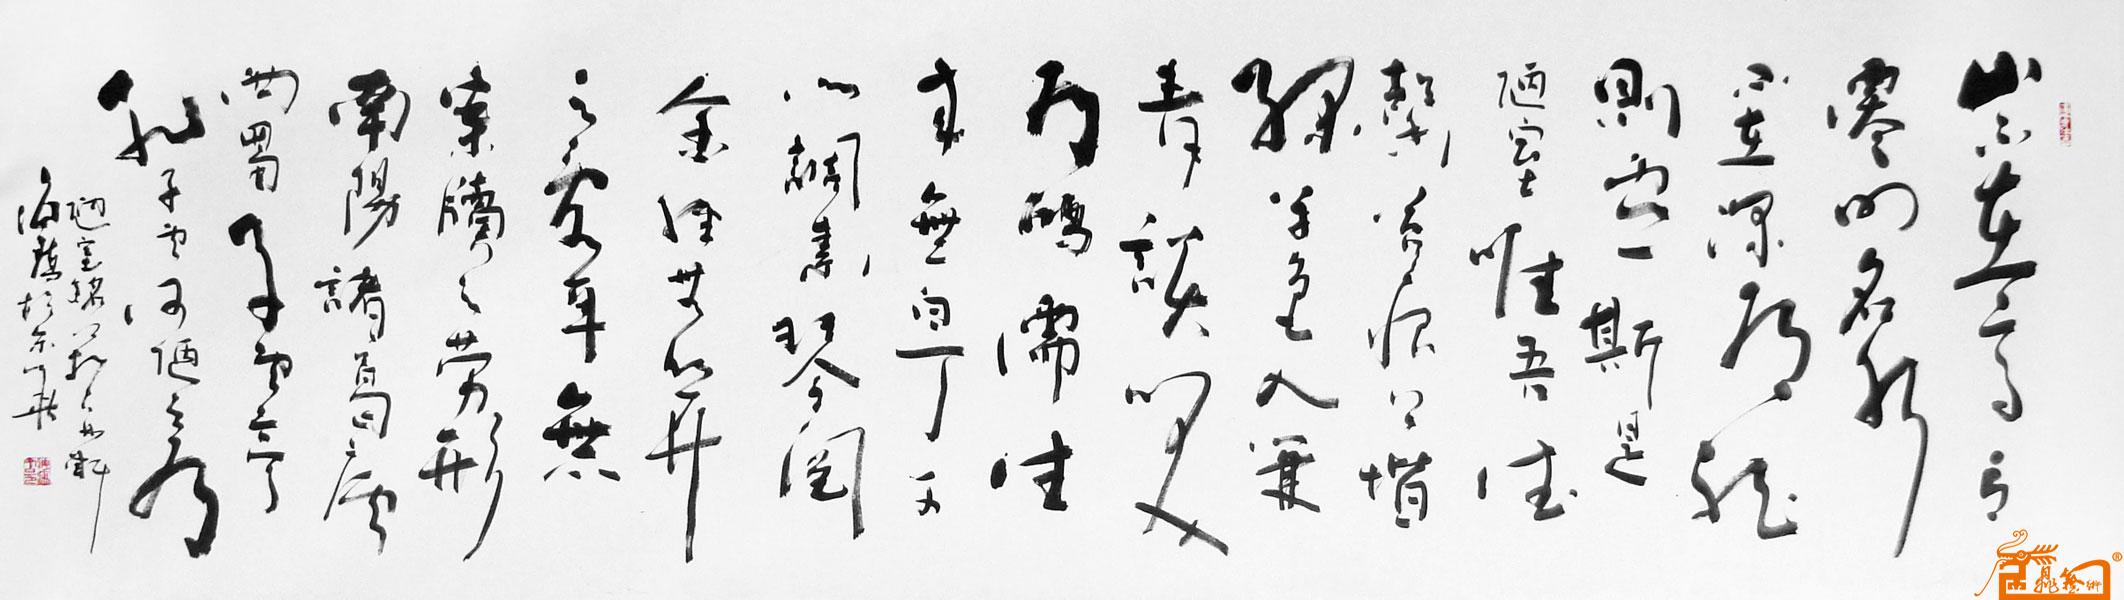 山不在高有
僊則名水
不在深有龍
則靈斯是
陋室唯吾德
馨苔痕上階
綠草色入簾
青談笑
有鴻儒往
來無白丁可
以調素琴閱
金經無絲竹
之亂耳無
案牘之勞形
南陽諸葛廬
西蜀子雲亭
孔子雲何陋之有
陋室銘